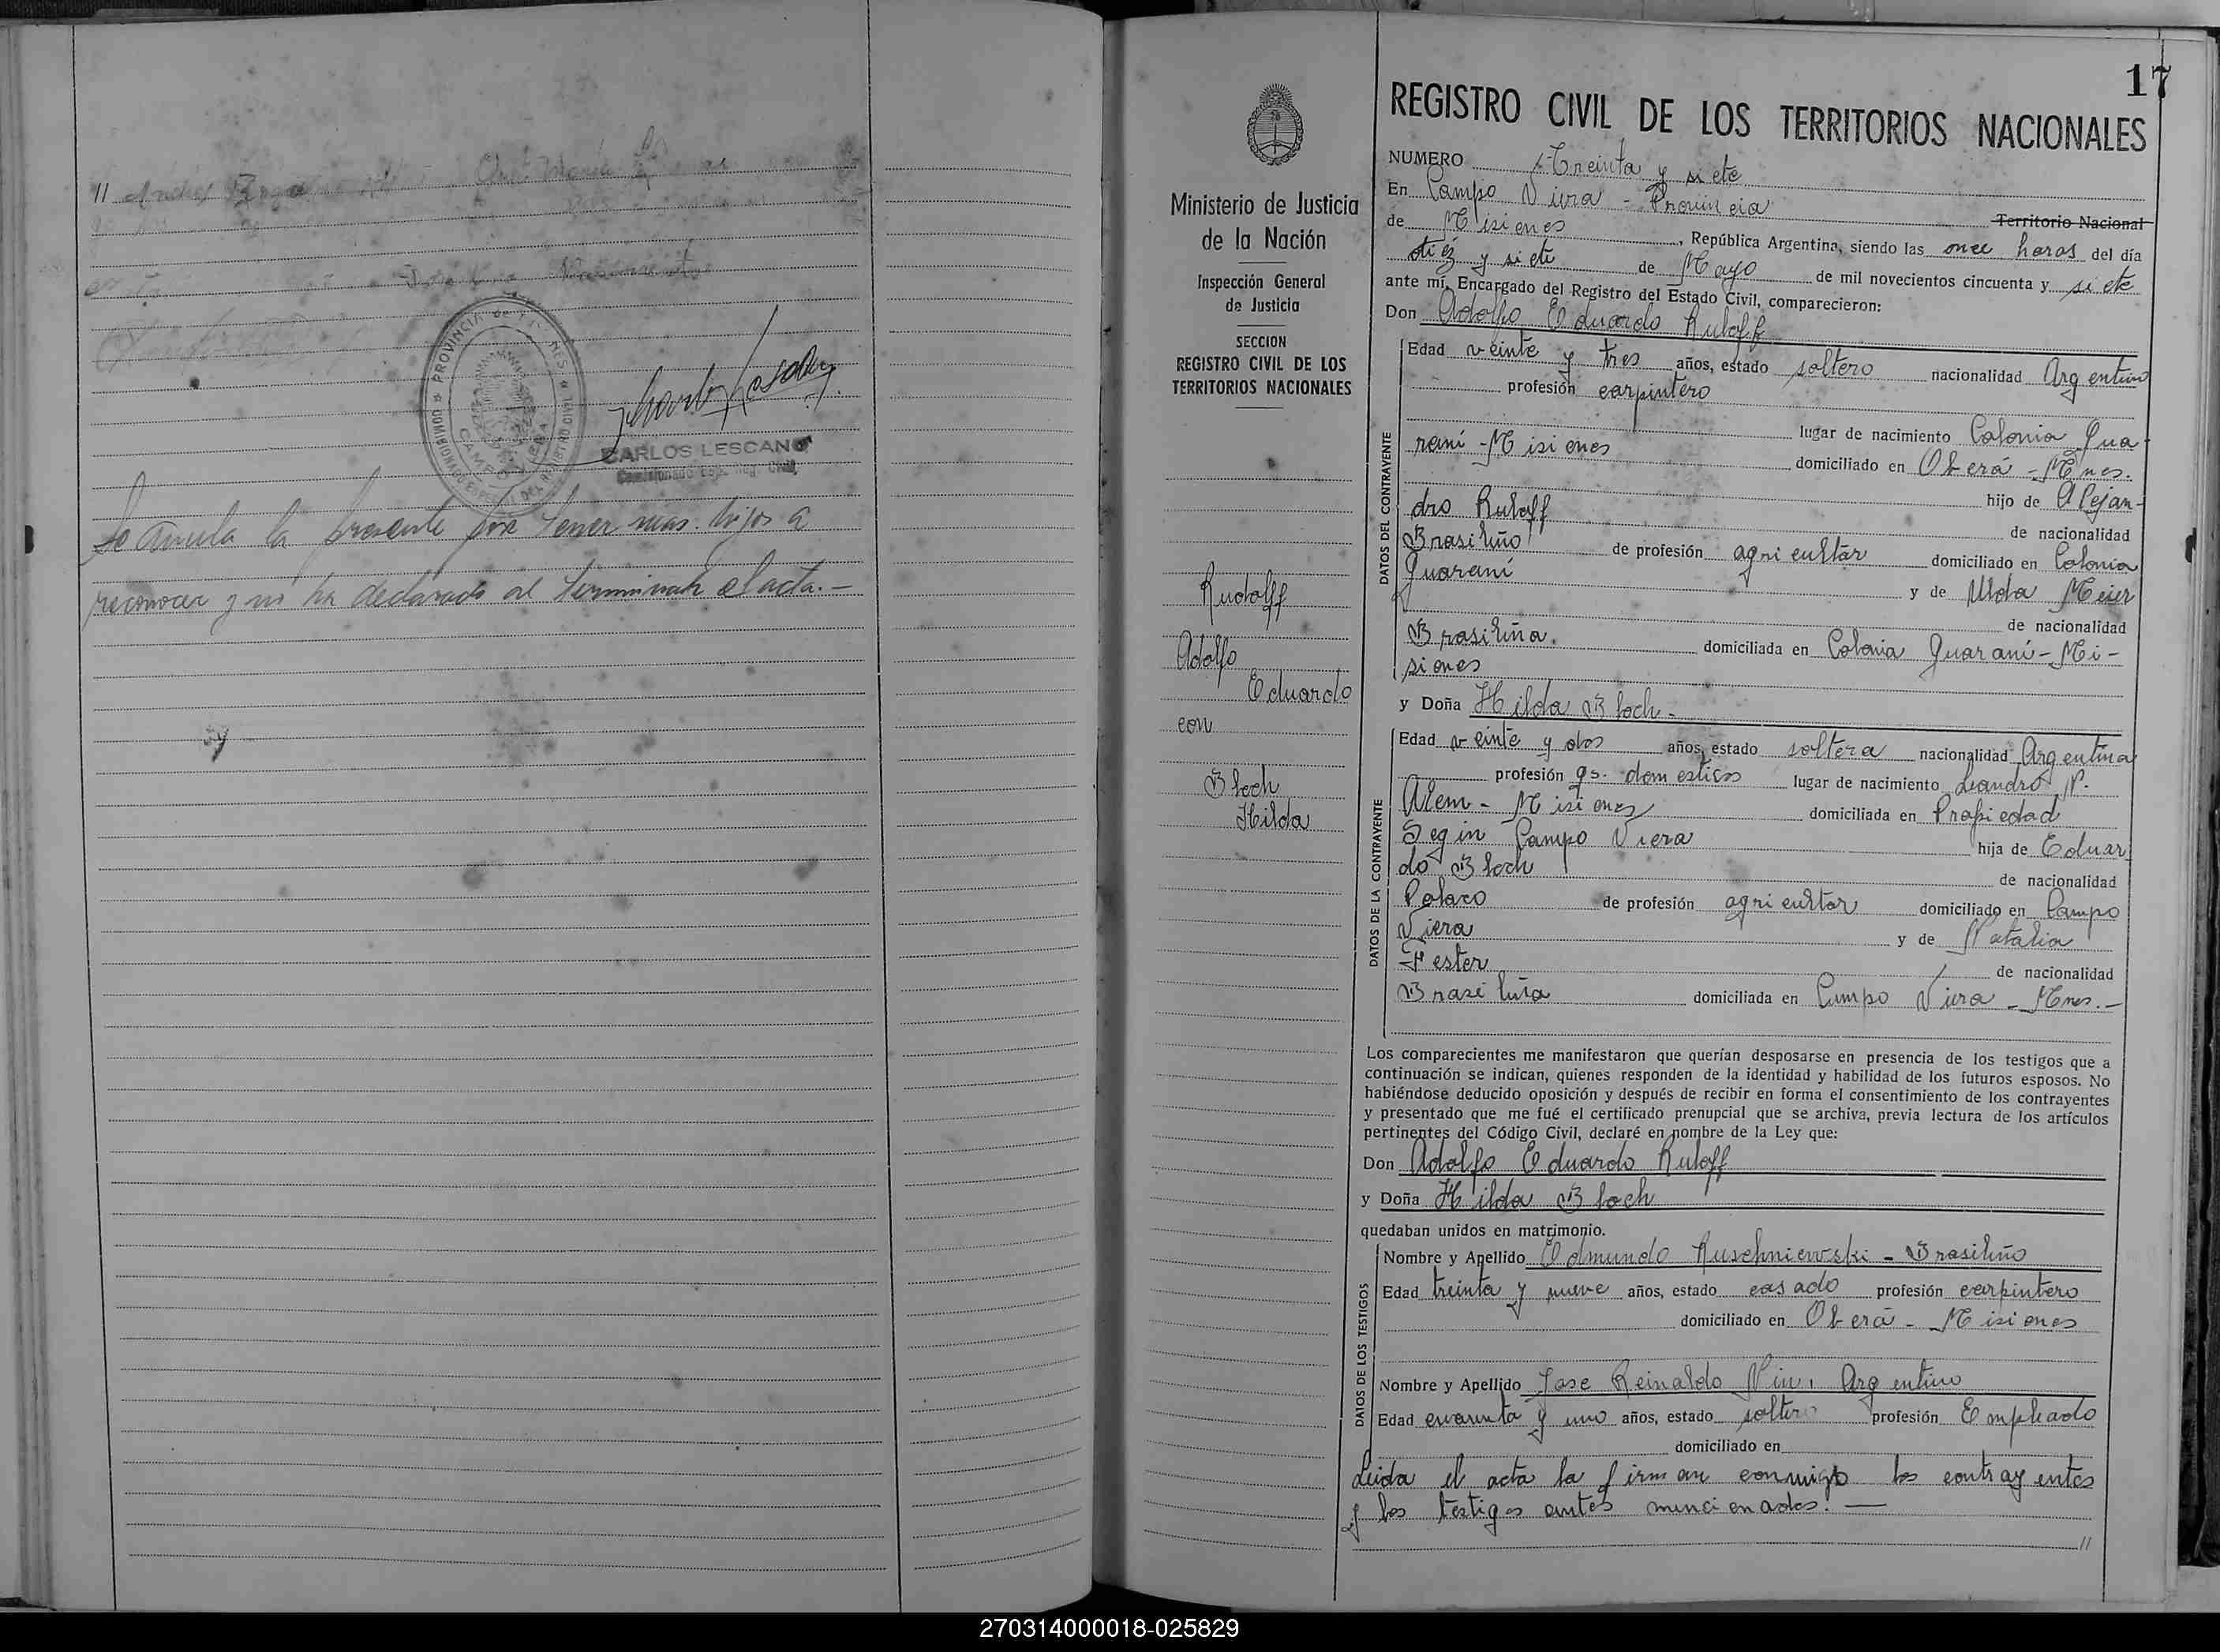 CARLOS LESCANO
Se anula la presente por tener mas hijos a
reconocer y no ha declarado al terminar el acta.-
17
Ministerio de Justicia
de la Nación
Inspección General
de Justicia
SECCION
REGISTRO CIVIL DE LOS
TERRITORIOS NACIONALES
Rudolff
Adolfo
Eduardo
con
Bloch
Hilda
REGISTRO CIVIL DE LOS TERRITORIOS NACIONALES
NUMERO Treinta y siete
En Campo Viera - Provincia Territorio Nacional
de Misiones, República Argentina, siendo las once horas del día
diéz y siete de Mayo de mil novecientos cincuenta y siete
ante mí, Encargado del Registro del Estado Civil, comparecieron:
Don Adolfo Eduardo Rutoff
Edad veinte y tres años, estado soltero nacionalidad Argentino
profesión carpintero
lugar de nacimiento Colonia Gua-
raní - Misiones domiciliado en Oberá - Mnes.
hijo de Alejan-
dro Rutoff de nacionalidad
Brasileño de profesión agricultor domiciliado en Colonia
Guaraní y de Ulda Meier
de nacionalidad
Brasileña. domiciliada en Colonia Guaraní - Mi-
siones
y Doña Hilda Bloch -
Edad veinte y dos años, estado soltera nacionalidad Argentina
profesión qs. domesticos lugar de nacimiento Leandro N.
Alem - Misiones domiciliada en Propiedad
Segin Campo Viera hija de Eduar
do Bloch de nacionalidad
Polaco de profesión agricultor domiciliado en Campo
Viera y de Natalia
Fester de nacionalidad
Brasileña domiciliada en Campo Viera - Mnes.-
Los comparecientes me manifestaron que querían desposarse en presencia de los testigos que a
continuación se indican, quienes responden de la identidad y habilidad de los futuros esposos. No
habiéndose deducido oposición y después de recibir en forma el consentimiento de los contrayentes
y presentado que me fué el certificado prenupcial que se archiva, previa lectura de los artículos
pertinentes del Código Civil, declaré en nombre de la Ley que:
Don Adolfo Eduardo Rutoff
y Doña Hilda Bloch
quedaban unidos en matrimonio.
Nombre y Apellido Edmundo Ruschniewski - Brasileño
Edad treinta y nueve años, estado casado profesión carpintero
domiciliado en Oberá - Misiones
Nombre y Apellido Jose Reinaldo Nin, Argentino
Edad cuarenta y uno años, estado soltero profesión Empleado
domiciliado en
Leida el acta la firman conmigo los contrayentes
y los testigos antes mencionados. —
//
DATOS DEL CONTRAYENTE
DATOS DE LA CONTRAYENTE
DATOS DE LOS TESTIGOS
270314000018-025829